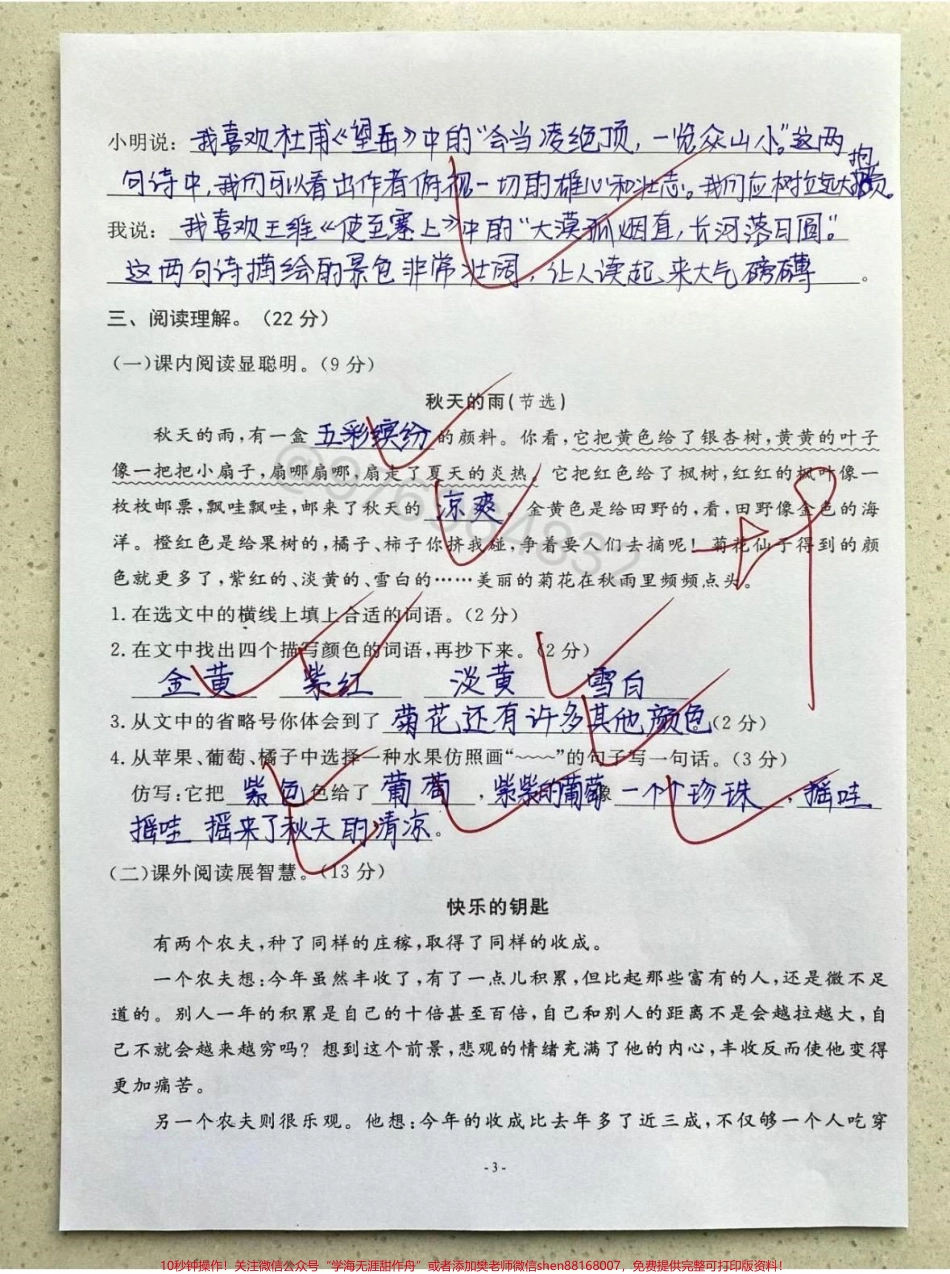 小明说:我喜欢杜甫《望岳》中的“会当凌绝顶,一览众山小。”这两
句诗中,我们可以看出作者俯视一切的雄心和壮志。我们应树立远大抱负。
我说:我喜欢王维《使至塞上》中的“大漠孤烟直,长河落日圆。”
这两句诗描绘的景色非常壮阔,让人读起来大气磅礴。
三、阅读理解。(22分)
(一)课内阅读显聪明。(9分)
秋天的雨(节选)
秋天的雨,有一盒五彩缤纷的颜料。你看,它把黄色给了银杏树,黄黄的叶子
像一把把小扇子,扇哪扇哪,扇走了夏天的炎热。它把红色给了枫树,红红的枫叶像一
枚枚邮票,飘哇飘哇,邮来了秋天的凉爽。金黄色是给田野的,看,田野像金色的海
洋。橙红色是给果树的,橘子、柿子你挤我碰,争着要人们去摘呢!菊花仙子得到的颜
色就更多了,紫红的、淡黄的、雪白的……美丽的菊花在秋雨里频频点头。
1.在选文中的横线上填上合适的词语。(2分)
2.在文中找出四个描写颜色的词语,再抄下来。(2分)
金黄 紫红 淡黄 雪白
3.从文中的省略号你体会到了菊花还有许多其他颜色(2分)
4.从苹果、葡萄、橘子中选择一种水果仿照画“~~~~”的句子写一句话。(3分)
仿写:它把紫色色给了葡萄,紫紫的葡萄像一个个珍珠,摇哇
摇哇 摇来了秋天的清凉。
(二)课外阅读展智慧。(13分)
快乐的钥匙
有两个农夫,种了同样的庄稼,取得了同样的收成。
一个农夫想:今年虽然丰收了,有了一点儿积累,但比起那些富有的人,还是微不足
道的。别人一年的积累是自己的十倍甚至百倍,自己和别人的距离不是会越拉越大,自
己不就会越来越穷吗?想到这个前景,悲观的情绪充满了他的内心,丰收反而使他变得
更加痛苦。
另一个农夫则很乐观。他想:今年的收成比去年多了近三成,不仅够一个人吃穿
-3-
10秒钟操作!关注微信公众号“学海无涯甜作舟”或者添加樊老师微信shen88168007,免费提供完整可打印版资料!